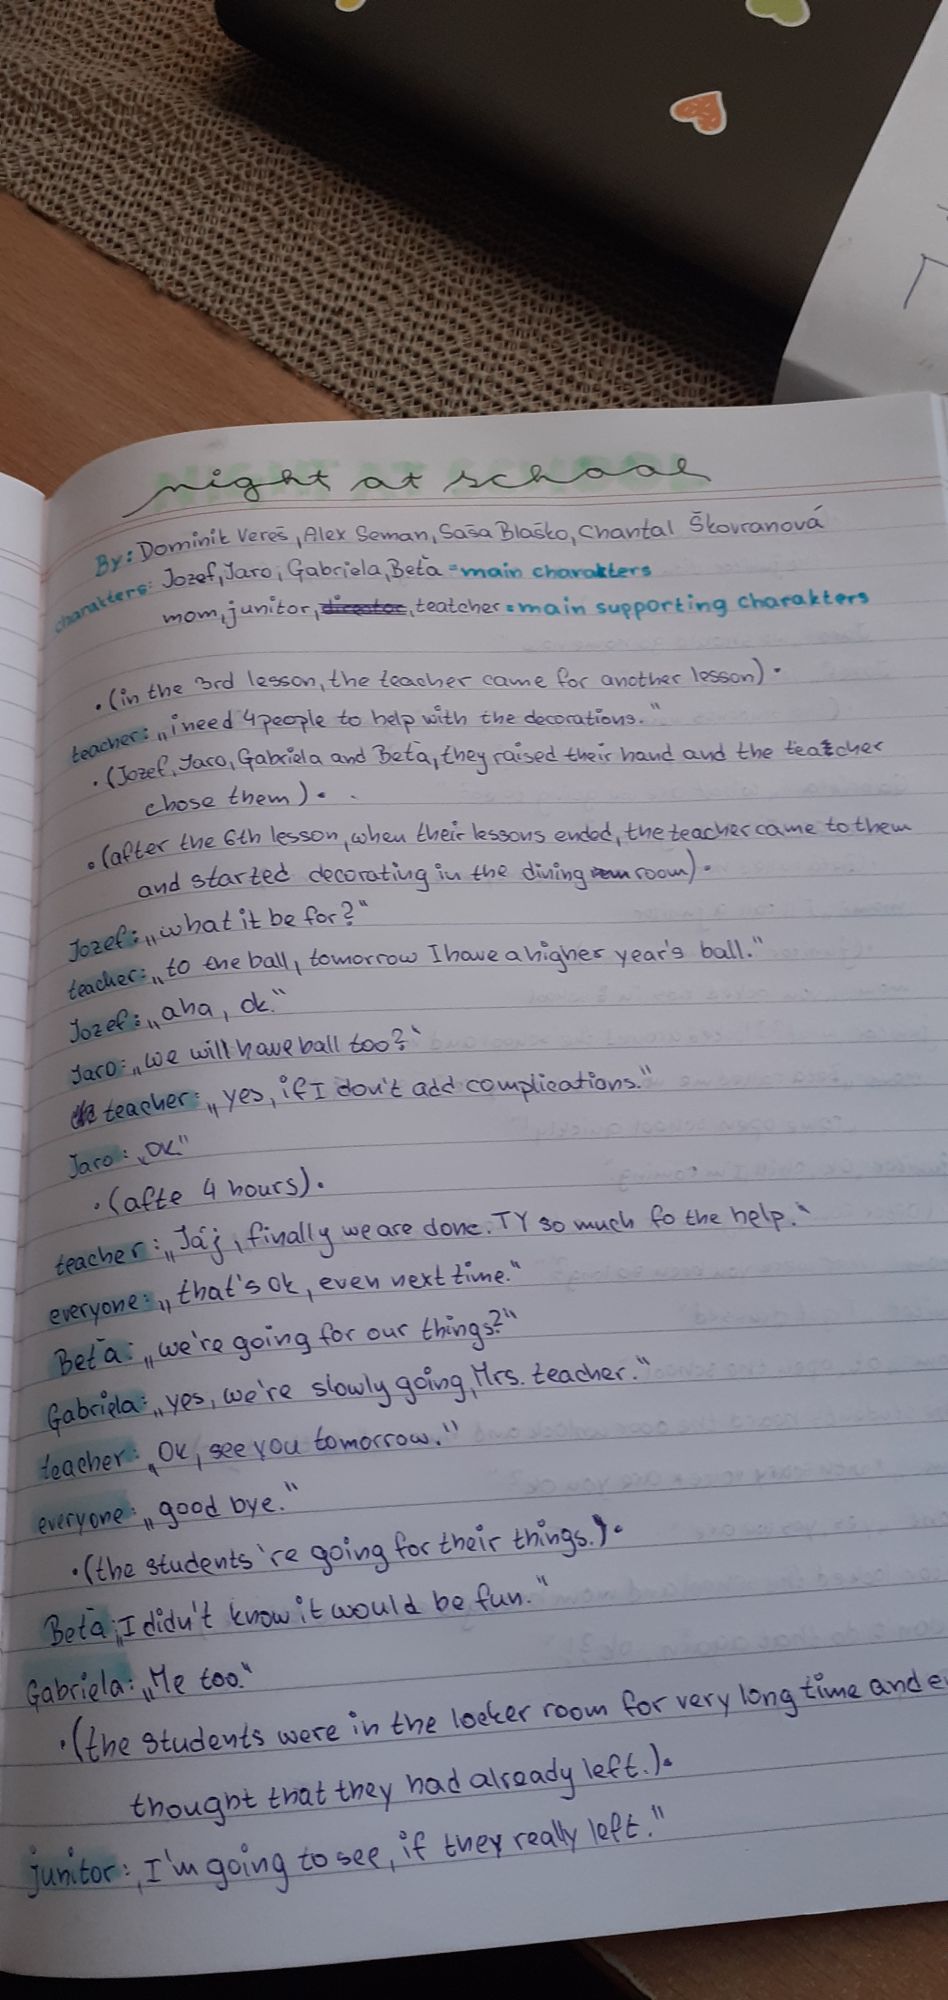 night at school
By: Dominik Vereš, Alex Seman, Saša Blaško, Chantal Škovranová
charakters: Jozef, Jaro, Gabriela, Beťa = main charakters
mom, junitor, teatcher = main supporting charakters
• (in the 3rd lesson, the teacher came for another lesson) •
teacher: „i need 4 people to help with the decorations."
• (Jozef, Jaro, Gabriela and Beťa, they raised their hand and the teatcher
chose them) •
• (after the 6th lesson, when their lessons ended, the teacher came to them
and started decorating in the dining room) •
Jozef: „what it be for?"
teacher: „to the ball, tomorrow I have a higher year's ball."
Jozef: „aha, ok."
Jaro: „we will have ball too?"
teacher: „yes, if I don't add complications."
Jaro: „ok"
• (afte 4 hours) •
teacher: „Jáj, finally we are done. TY so much fo the help."
everyone: „that's ok, even next time."
Beťa: „we're going for our things?"
Gabriela: „yes, we're slowly going, Mrs. teacher."
teacher: „Ok, see you tomorrow."
everyone: „good bye."
• (the students 're going for their things.) •
Beťa: „I didn't know it would be fun."
Gabriela: „Me too."
• (the students were in the locker room for very long time and
thought that they had already left.) •
junitor: „I'm going to see, if they really left."